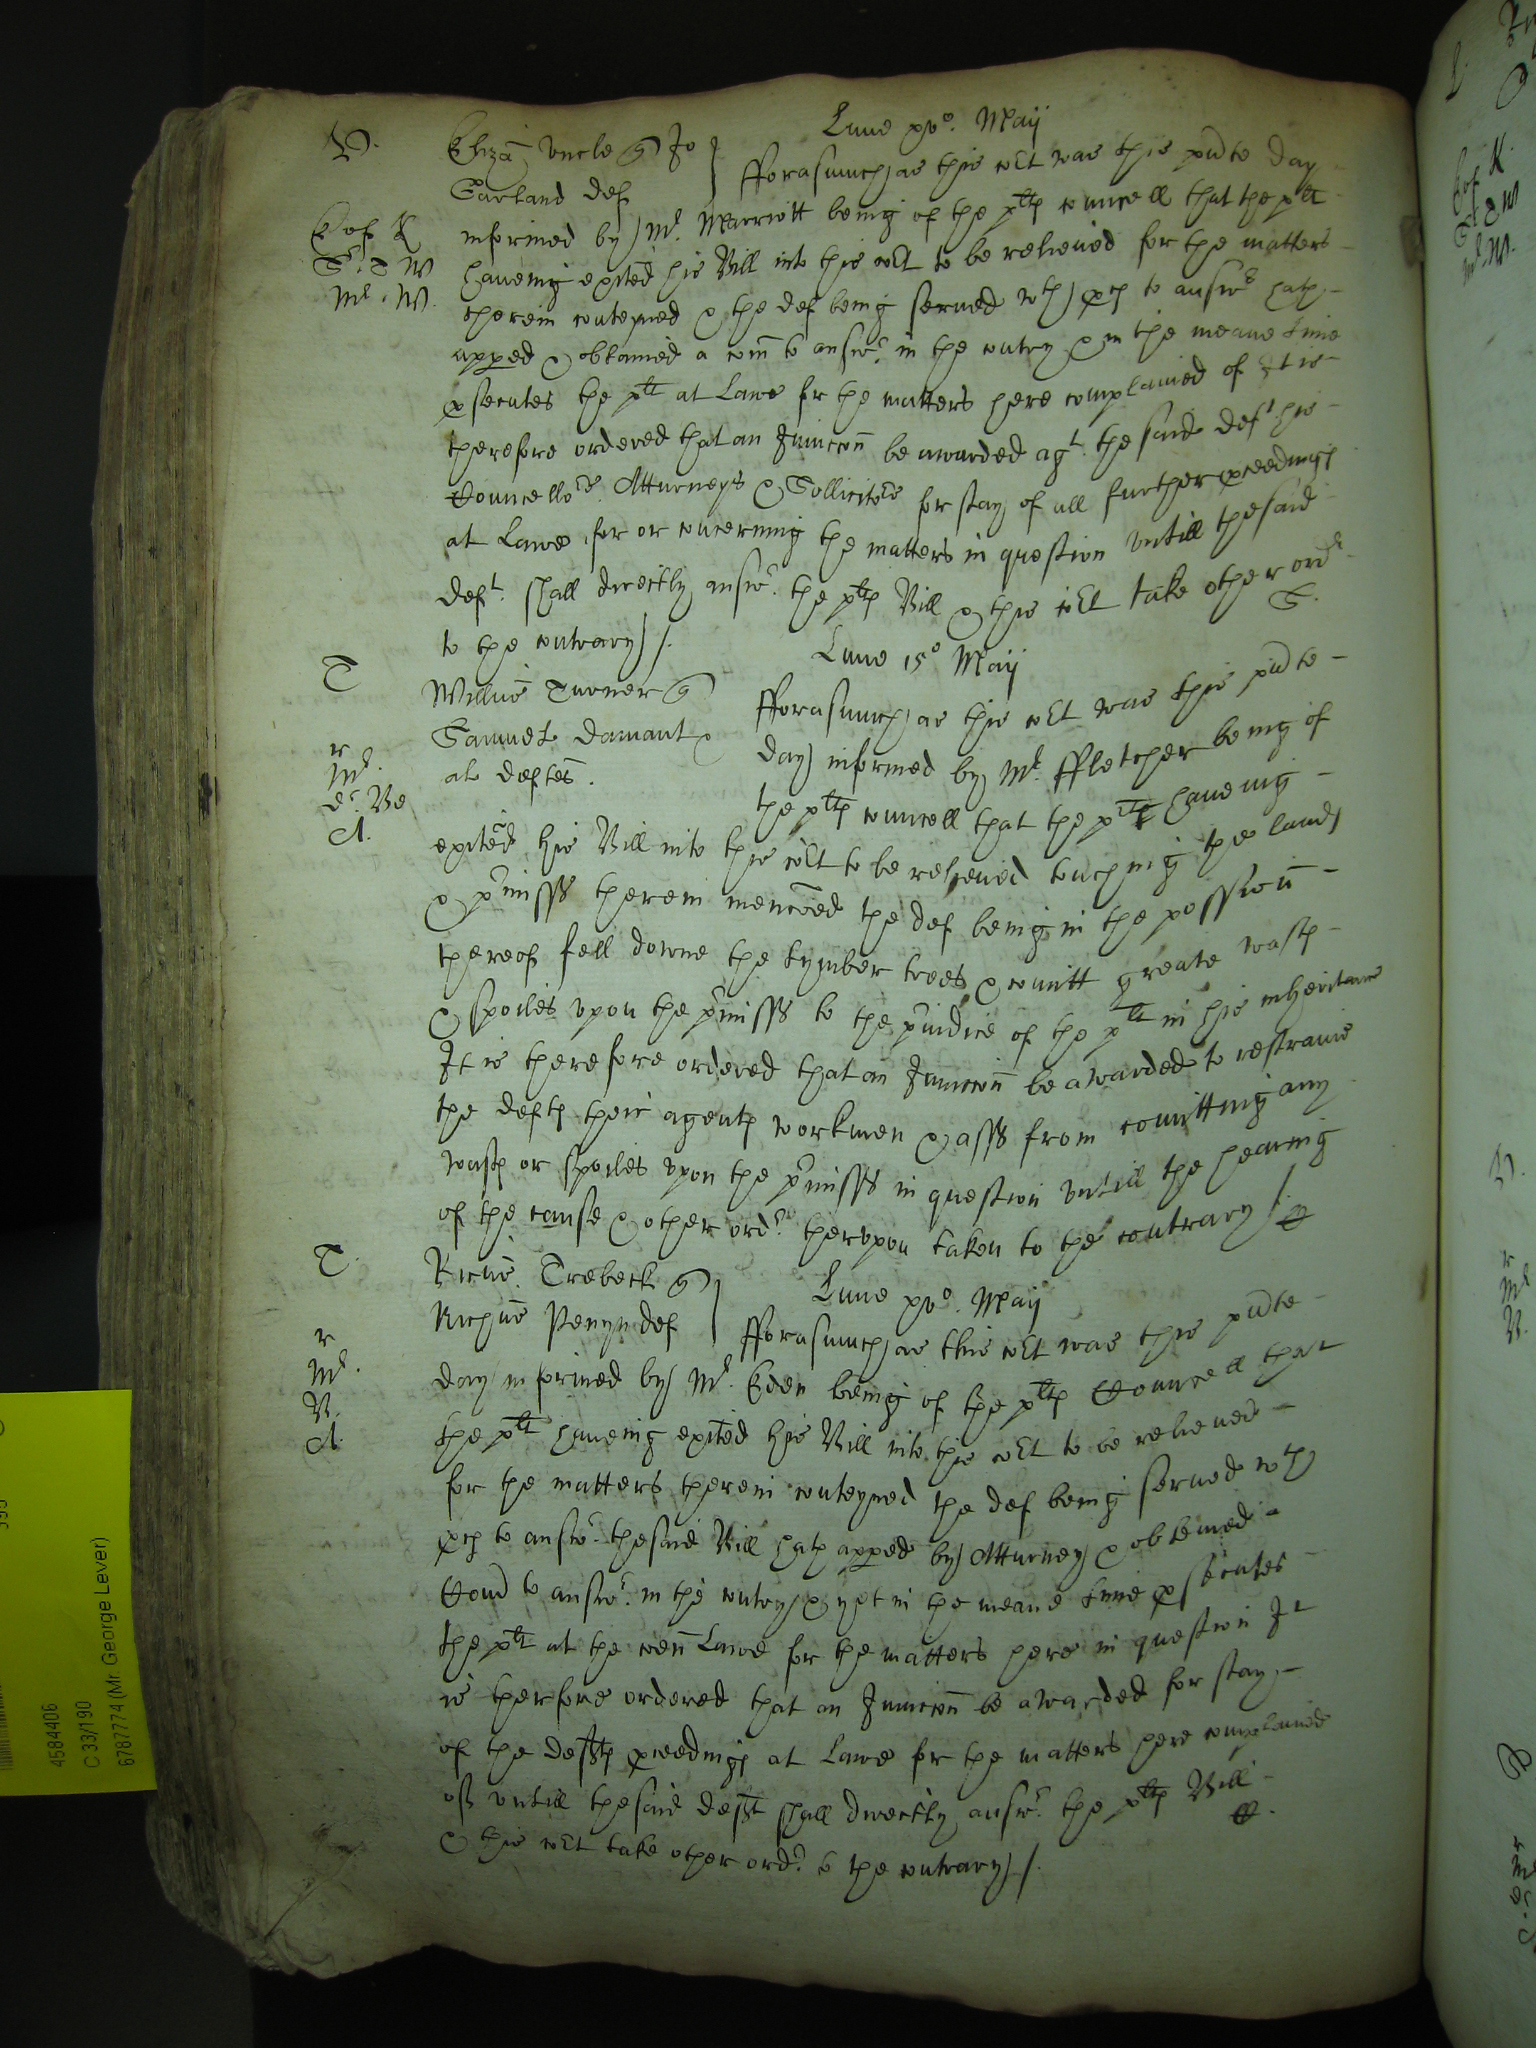 V.
Lune xvo. Maij
Eliza Vncle q Jo
Garland def
fforasmuch as this cort was this pnte day
E of K
S.
Mr. W.
informed by Mr. Marriott being of the plts councell that the plt
haueing exited his Bill into this cort to be relieued for the matters
therein conteyned & the def being serued wth pces to answr hath
apped & obtained a com to answr. in the contry & in the meane time
psecutes the plt at Lawe for the matters here complained of It is
therefore ordered that an Iniuccon be awarded agt. the said deft his
Councellors. Atturneys & Sollicitors for stay of all further pceedings
at Lawe for or concerning the matters in question vntill the said
deft. shall directly answr. the plts Bill & this cort take other ordr
to the contrary /.
S.
T
Lune 15o Maij
Willms Turner q
Samuel Damant &
als deftes.
fforasmuch as this cort was this pnte
day informed by Mr. ffletcher being of
the plts councell that the plt haueing
r
Mr.
A.
exited his Bill into this cort to be releiued touching the lands
& prmisss therein mencoed the def being in the possession
thereof fell downe the tymber trees & comitt greate wasts
& spoiles vpon the prmisss to the priudice of the plt in his inheritance
It is therefore ordered that an Iniuccon be awarded to restraine
the defts their agents workmen & asss from comitting any
wasts or spoiles vpon the prmisss in question vntill the hearing
of the cause & other ordr. therupon taken to the contrary /.
T.
Lune xvo. Maij
Ricus. Trebeck q
Richus Penyn def
fforasmuch as this cort was this pnte
r
Mr.
V.
A.
day informed by Mr. Eden being of the plts Councell that
the plt haueing exited his Bill into this cort to be relieued
for the matters therein conteyned the def being serued wth
pces to answr. the said Bill hath apped by Atturney & obteined
Com to answr. in the contry & yet in the meane time psecutes
the plt at the comn Lawe for the matters here in question It
is therfore ordered that an Iniuccon be awarded for stay
of the defts pceedings at Lawe for the matters here complained
of vntill the said deft shall directly answr. the plts Bill
& this cort take other ordr. to the contrary /.
4584406
C 33/190
6787774 (Mr. George Lever)